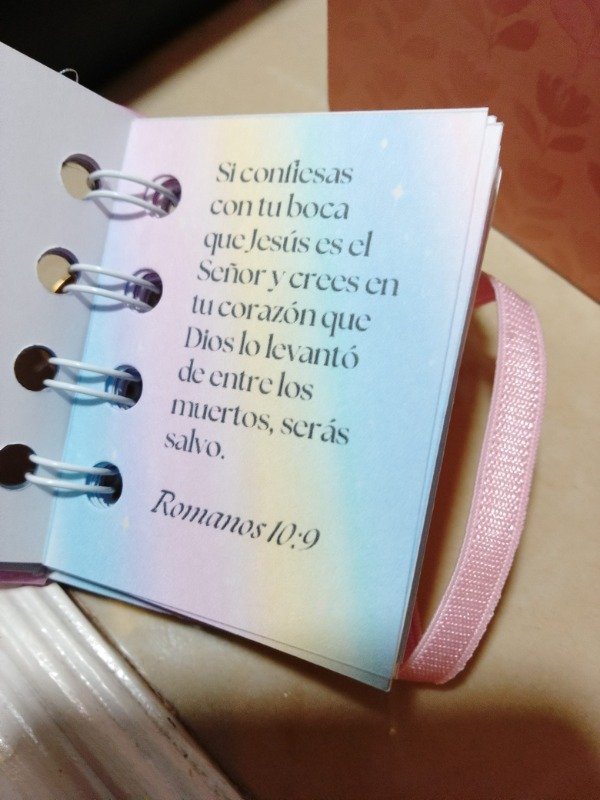 Si confiesas
con tu boca
que Jesús es el
Señor y crees en
tu corazón que
Dios lo levantó
de entre los
muertos, serás
salvo.
Romanos 10:9